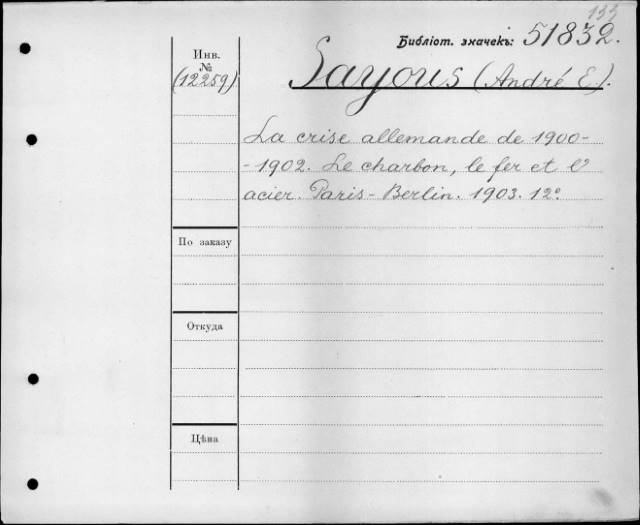 133
Библіот. значекъ: 51832.
Инв.
№
(12259)
Sayous (André E.).
La crise allemande de 1900-
-1902. Le charbon, le fer et l'
acier. Paris-Berlin. 1903. 12°
По заказу
Откуда
Цѣна